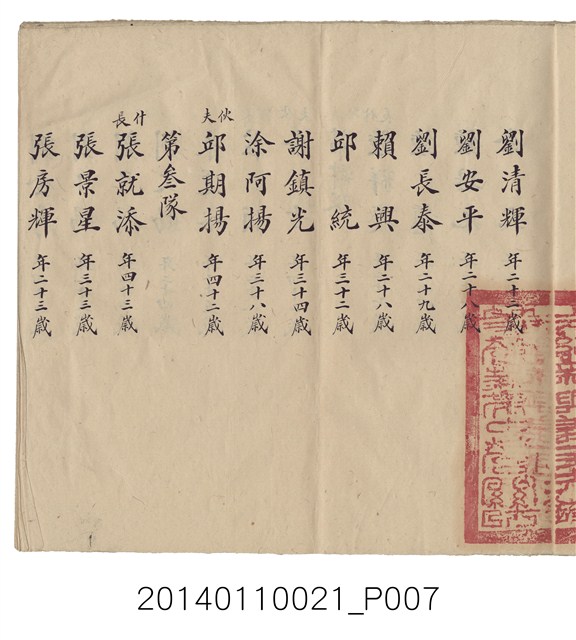 劉清輝 年二十二歲
劉安平 年二十八歲
劉長泰 年二十九歲
賴興 年二十八歲
邱統 年三十二歲
謝鎮光 年三十四歲
涂阿揚 年三十八歲
伙夫 邱期揚 年四十二歲
第叁隊
什長 張就添 年四十三歲
張景星 年三十三歲
張房輝 年二十三歲
20140110021_P007